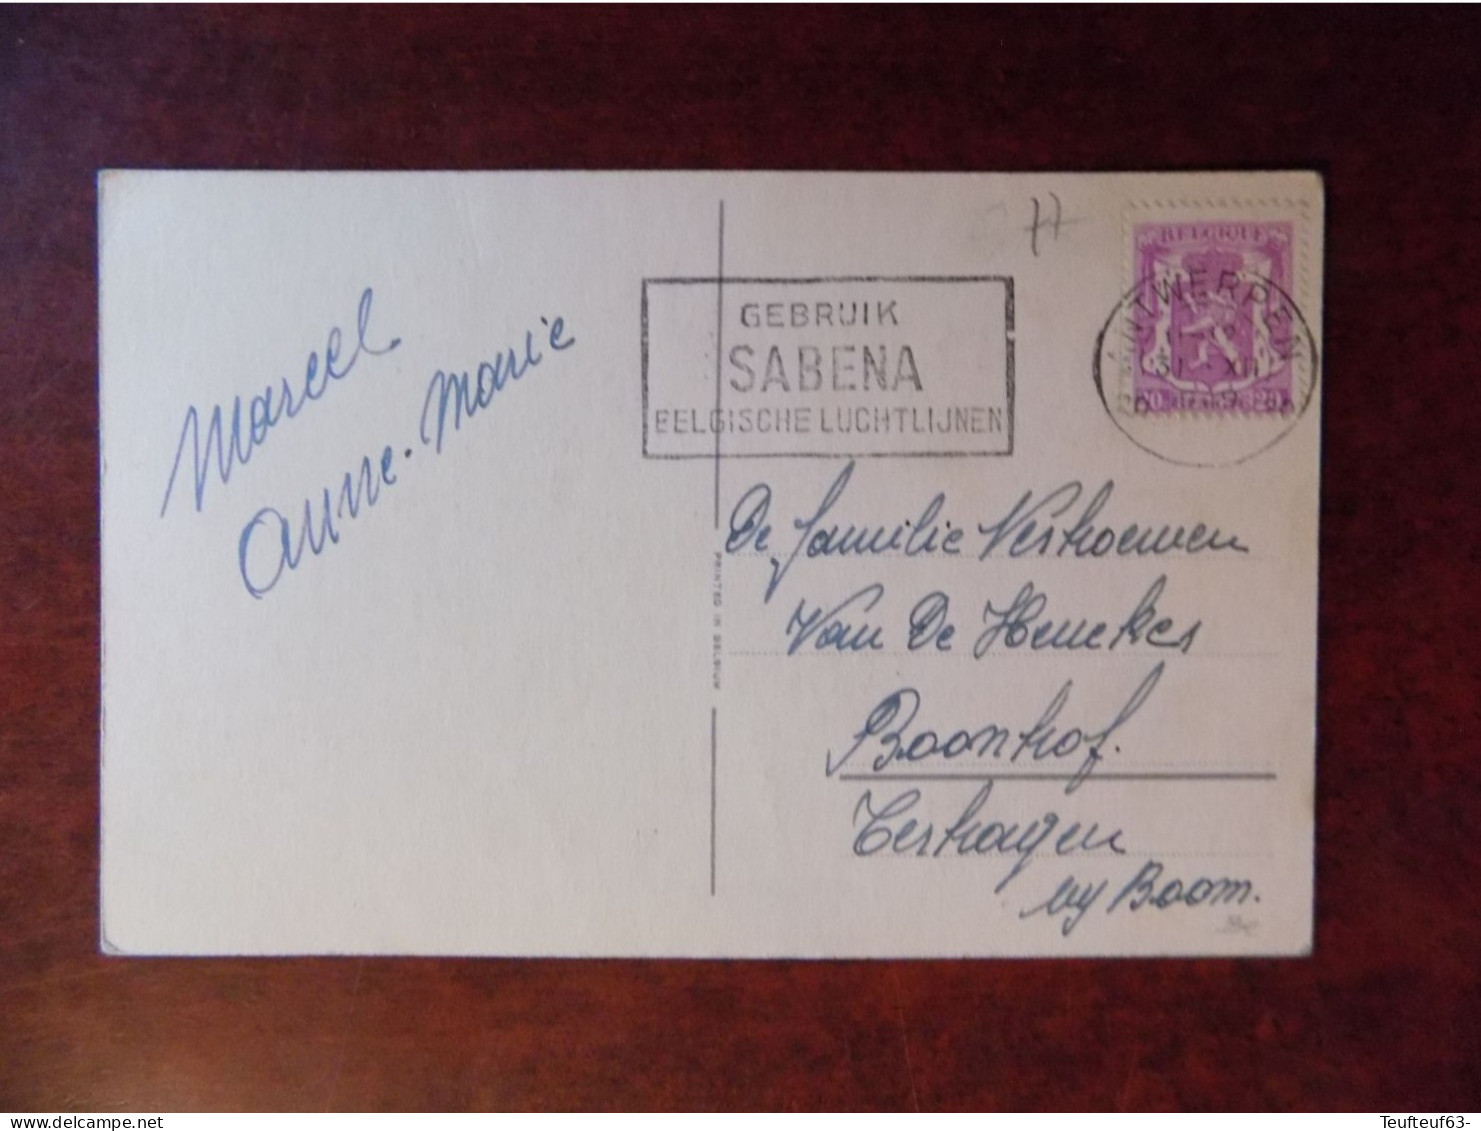 77
BELGIQUE
ANTWERPEN
31 XII
20 20
GEBRUIK
SABENA
BELGISCHE LUCHTLIJNEN
Marcel
Anne-Marie
De familie Verhoeven
Van De Heuckes
Boomhof.
Terhagen
by Boom.
PRINTED IN BELGIUM
delcampe.net
Teufteuf63-